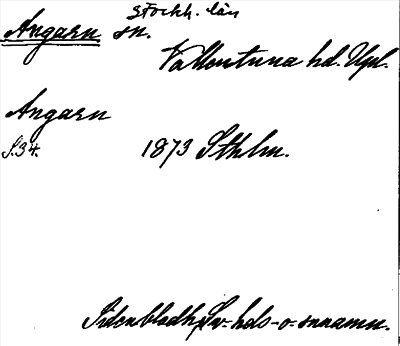 Stockh. län
Angarn sn.
Vallentuna hd. Upl.
Angarn
S.34. 1873 Sthlm.
Sidenbladh, Sv. hds- o. snnamn.